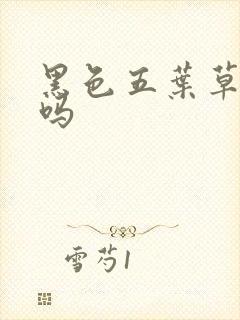 黑色五葉草
吗
雪芍1